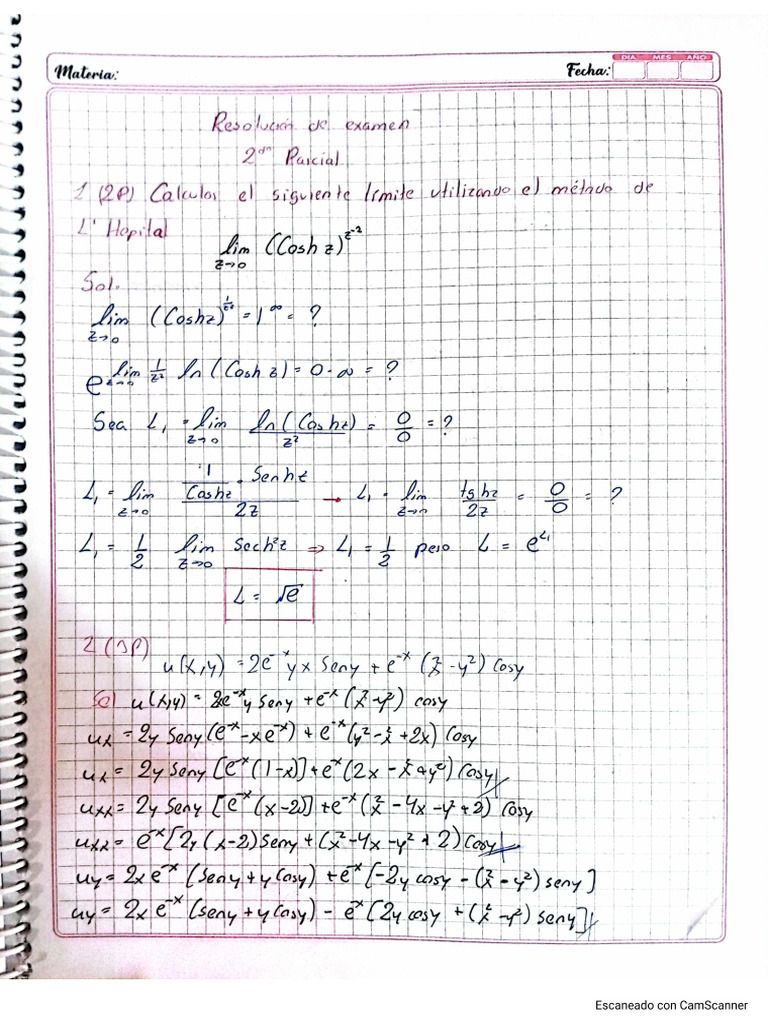 Materia:
Fecha:
DIA MES AÑO
Resolución de examen
2do Parcial
1 (2P) Calcular el siguiente límite utilizando el método de
L' Hopital
lim z→0 (Cosh z)^z^-2
Sol.
lim z→0 (Cosh z)^(1/z²) = 1^∞ = ?
e^lim z→0 1/z² ln (Cosh z) = 0·∞ = ?
Sea L₁ = lim z→0 ln(Cosh z)/z² = 0/0 = ?
L₁ = lim z→0 (1/Cosh z · Senhz)/2z → L₁ = lim z→0 tghz/2z = 0/0 = ?
L₁ = 1/2 lim z→0 Sech²z ⇒ L₁ = 1/2 pero L = e^L₁
L = √e
2 (3P)
u(x,y) = 2e^-x yx Seny + e^-x (x² - y²) Cosy
Sol u(x,y) = 2xe^-x y Seny + e^-x (x² - y²) cosy
ux = 2y Seny (e^-x - xe^-x) + e^-x (y² - x² + 2x) Cosy
ux = 2y Seny [e^-x (1-x)] + e^-x (2x - x² + y²) Cosy
uxx = 2y Seny [e^-x (x-2)] + e^-x (x² - 4x - y² + 2) Cosy
uxx = e^-x [2y (x-2) Seny + (x² - 4x - y² + 2) Cosy
uy = 2x e^-x (Seny + y Cosy) + e^-x [-2y cosy - (x² - y²) seny]
uy = 2x e^-x (seny + y cosy) - e^-x [2y cosy + (x² - y²) seny]
Escaneado con CamScanner